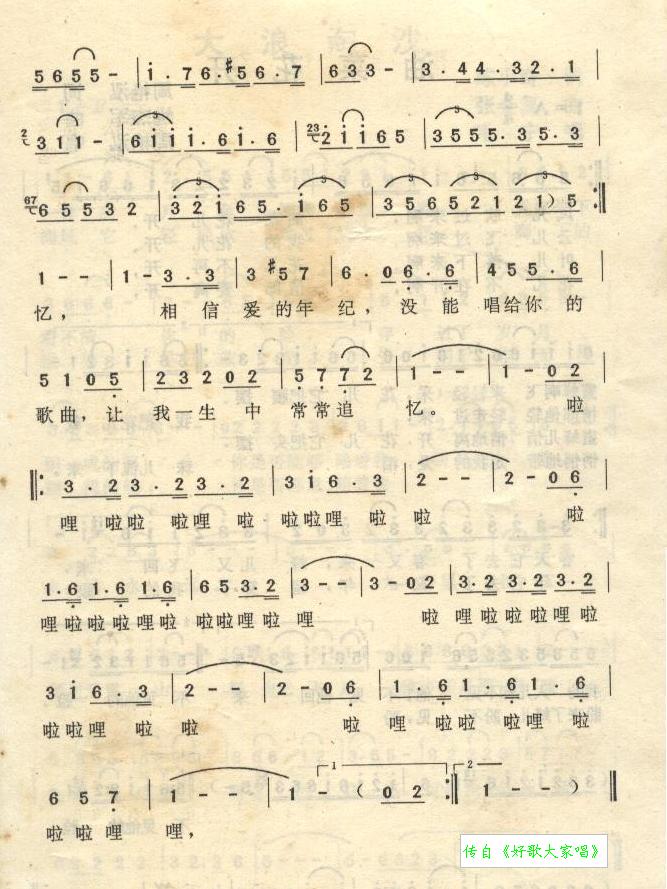 5 6 5 5 - | i . 7 6 . #5 6 . 7 | 6 3 3 - | 3 . 4 4 . 3 2 . 1 |
2 3 1 1 - | 6 i i i . 6 i . 6 | 23 2 i i 6 5 | 3 5 5 5 . 3 5 . 3 |
67 6 5 5 3 2 | 3 2 i 6 5 . i 6 5 | 3 5 6 5 2 1 2 1 ) 5 :‖
1 - - | 1 - 3 . 3 | 3 #5 7 | 6 . 0 6 . 6 | 4 5 5 . 6 |
忆， 相信 爱的年纪，没能 唱给你的
5 1 0 5 | 2 3 2 0 2 | 5 7 7 2 | 1 - - | 1 - 0 2 |
歌曲，让 我一生中 常常追 忆。 啦
‖: 3 . 2 3 . 2 3 . 2 | 3 i 6 . 3 | 2 - - | 2 - 0 6 |
哩 啦啦 啦哩 啦 啦啦哩 啦 啦 啦
1 . 6 1 . 6 1 . 6 | 6 5 3 . 2 | 3 - - | 3 - 0 2 | 3 . 2 3 . 2 3 . 2 |
哩啦啦啦哩啦 啦啦哩啦 哩 啦 哩啦啦啦哩啦
3 i 6 . 3 | 2 - - | 2 - 0 6 | 1 . 6 1 . 6 1 . 6 |
啦啦哩 啦 啦 啦 哩 啦啦 啦哩 啦
6 5 7 | 1 - - | 1 1 - ( 0 2 ) :‖ 2 1 - - ‖
啦啦哩 哩，
传自《好歌大家唱》